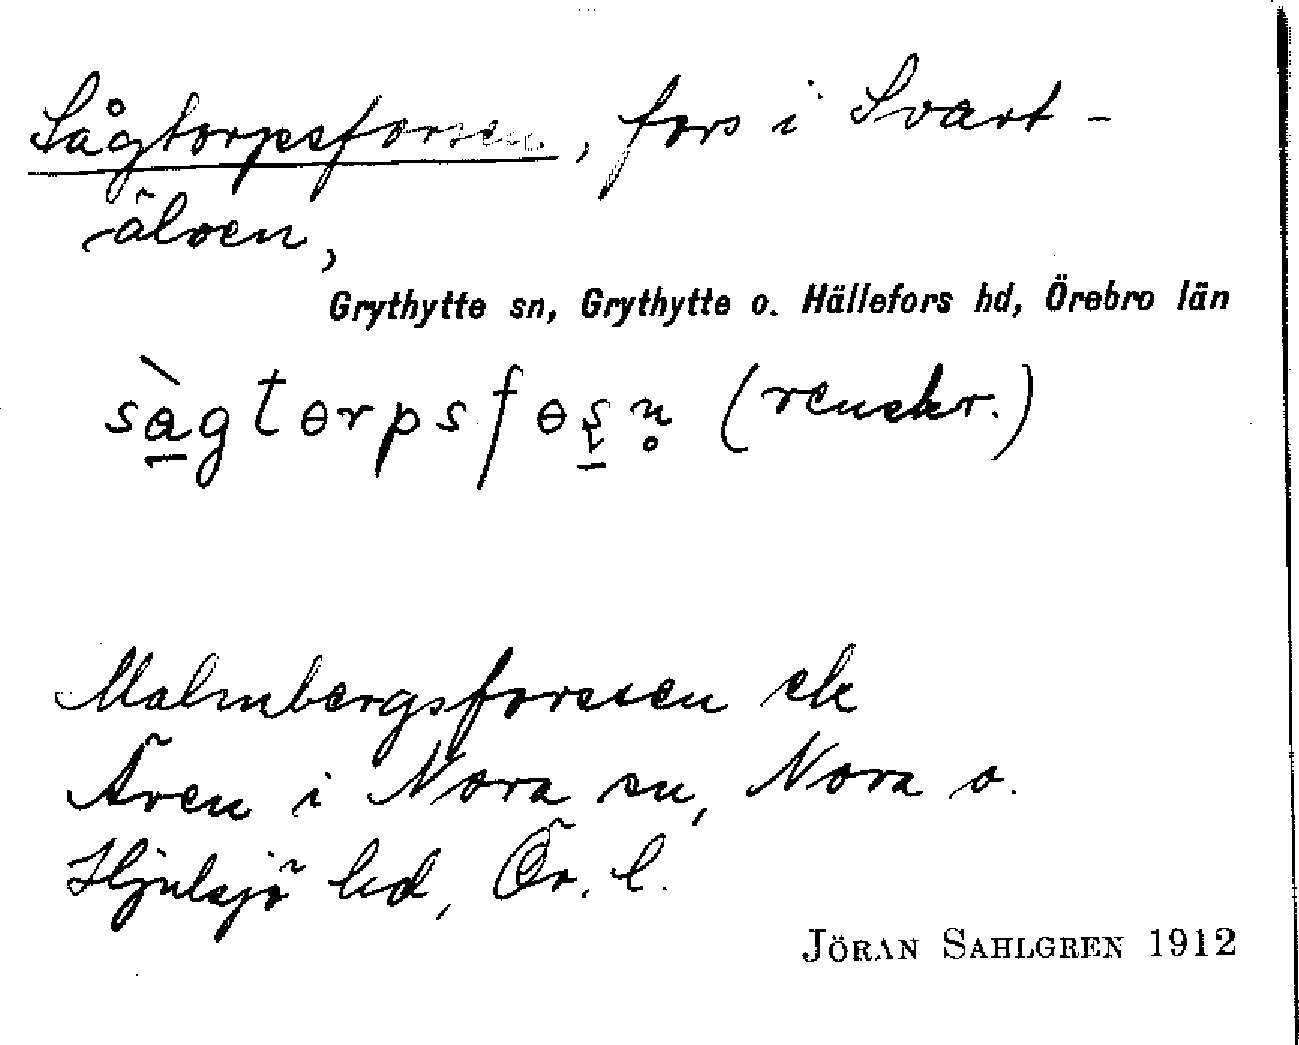 Sågtorpsforsen, fors i Svart-
älven,
Grythytte sn, Grythytte o. Hällefors hd, Örebro län
(renskr.)
Malmbergsforsen
Åren i Nora sn, Nora o.
Hjulsjö hd, Ör. l.
JÖRAN SAHLGREN 1912